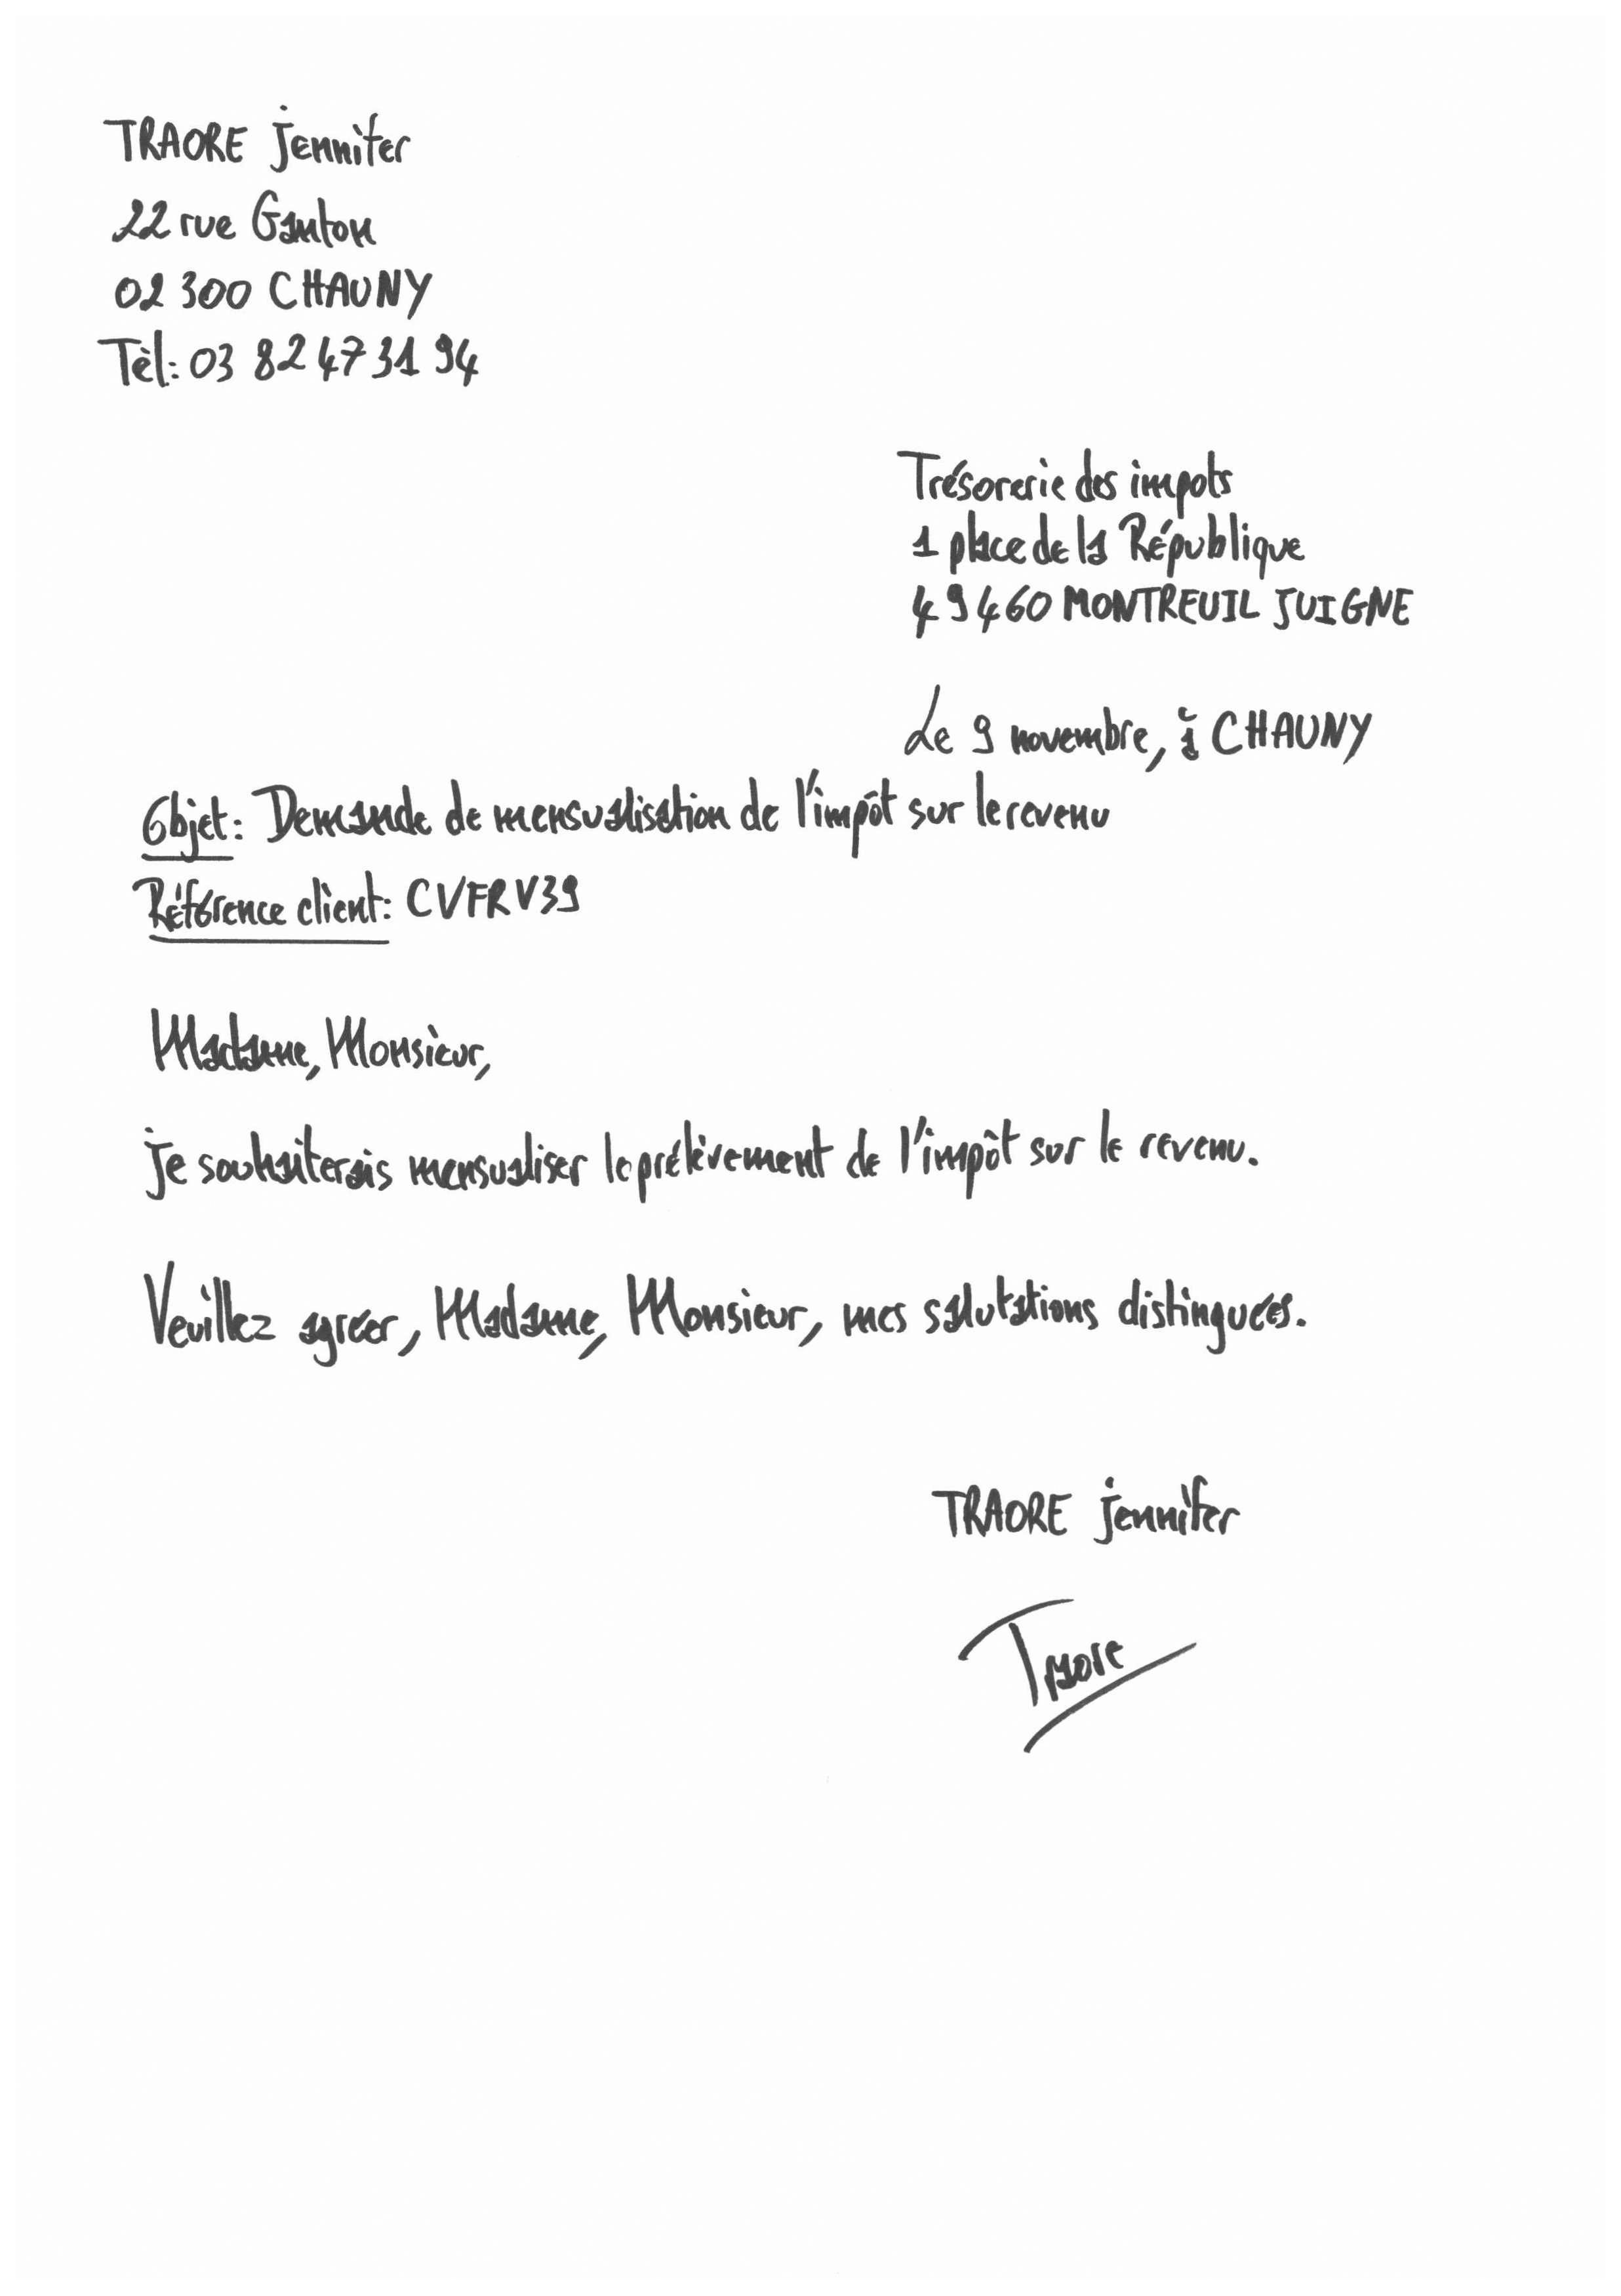 TRAORE Jennifer
22 rue Ganton
02 300 CHAUNY
Tèl: 03 82 47 31 94
Trésorerie des impots
1 place de la République
49460 MONTREUIL JUIGNE
Le 9 novembre, à CHAUNY
Objet: Demande de mensualisation de l'impôt sur le revenu
Référence client: CVFRV39
Madame, Monsieur,
Je souhaiterais mensualiser le prélèvement de l'impôt sur le revenu.
Veuillez agréer, Madame, Monsieur, mes salutations distinguées.
TRAORE Jennifer
Traore